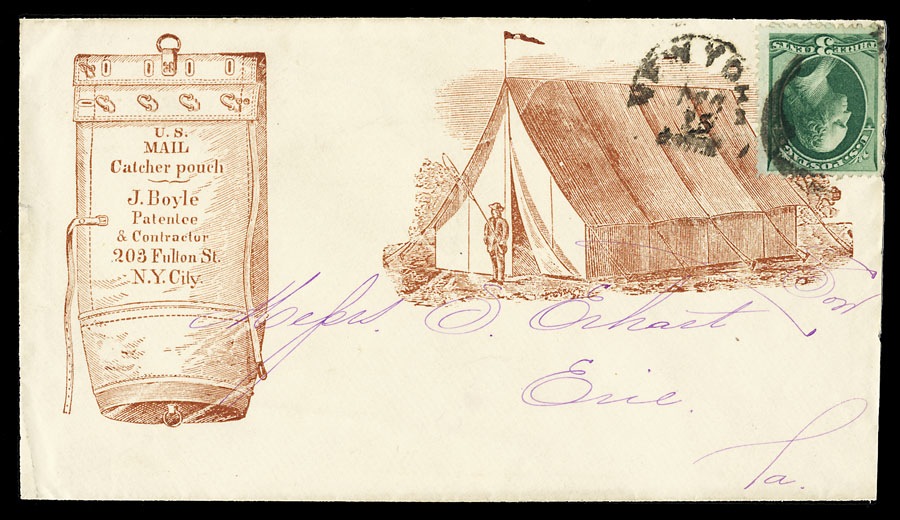 U.S.
MAIL
Catcher pouch
J. Boyle
Patentee
& Contractor
203 Fulton St.
N.Y. City.
NEW YORK
15
THREE 3 CENTS
U.S. POSTAGE
Messrs. S. Erhart & Son
Erie.
Pa.